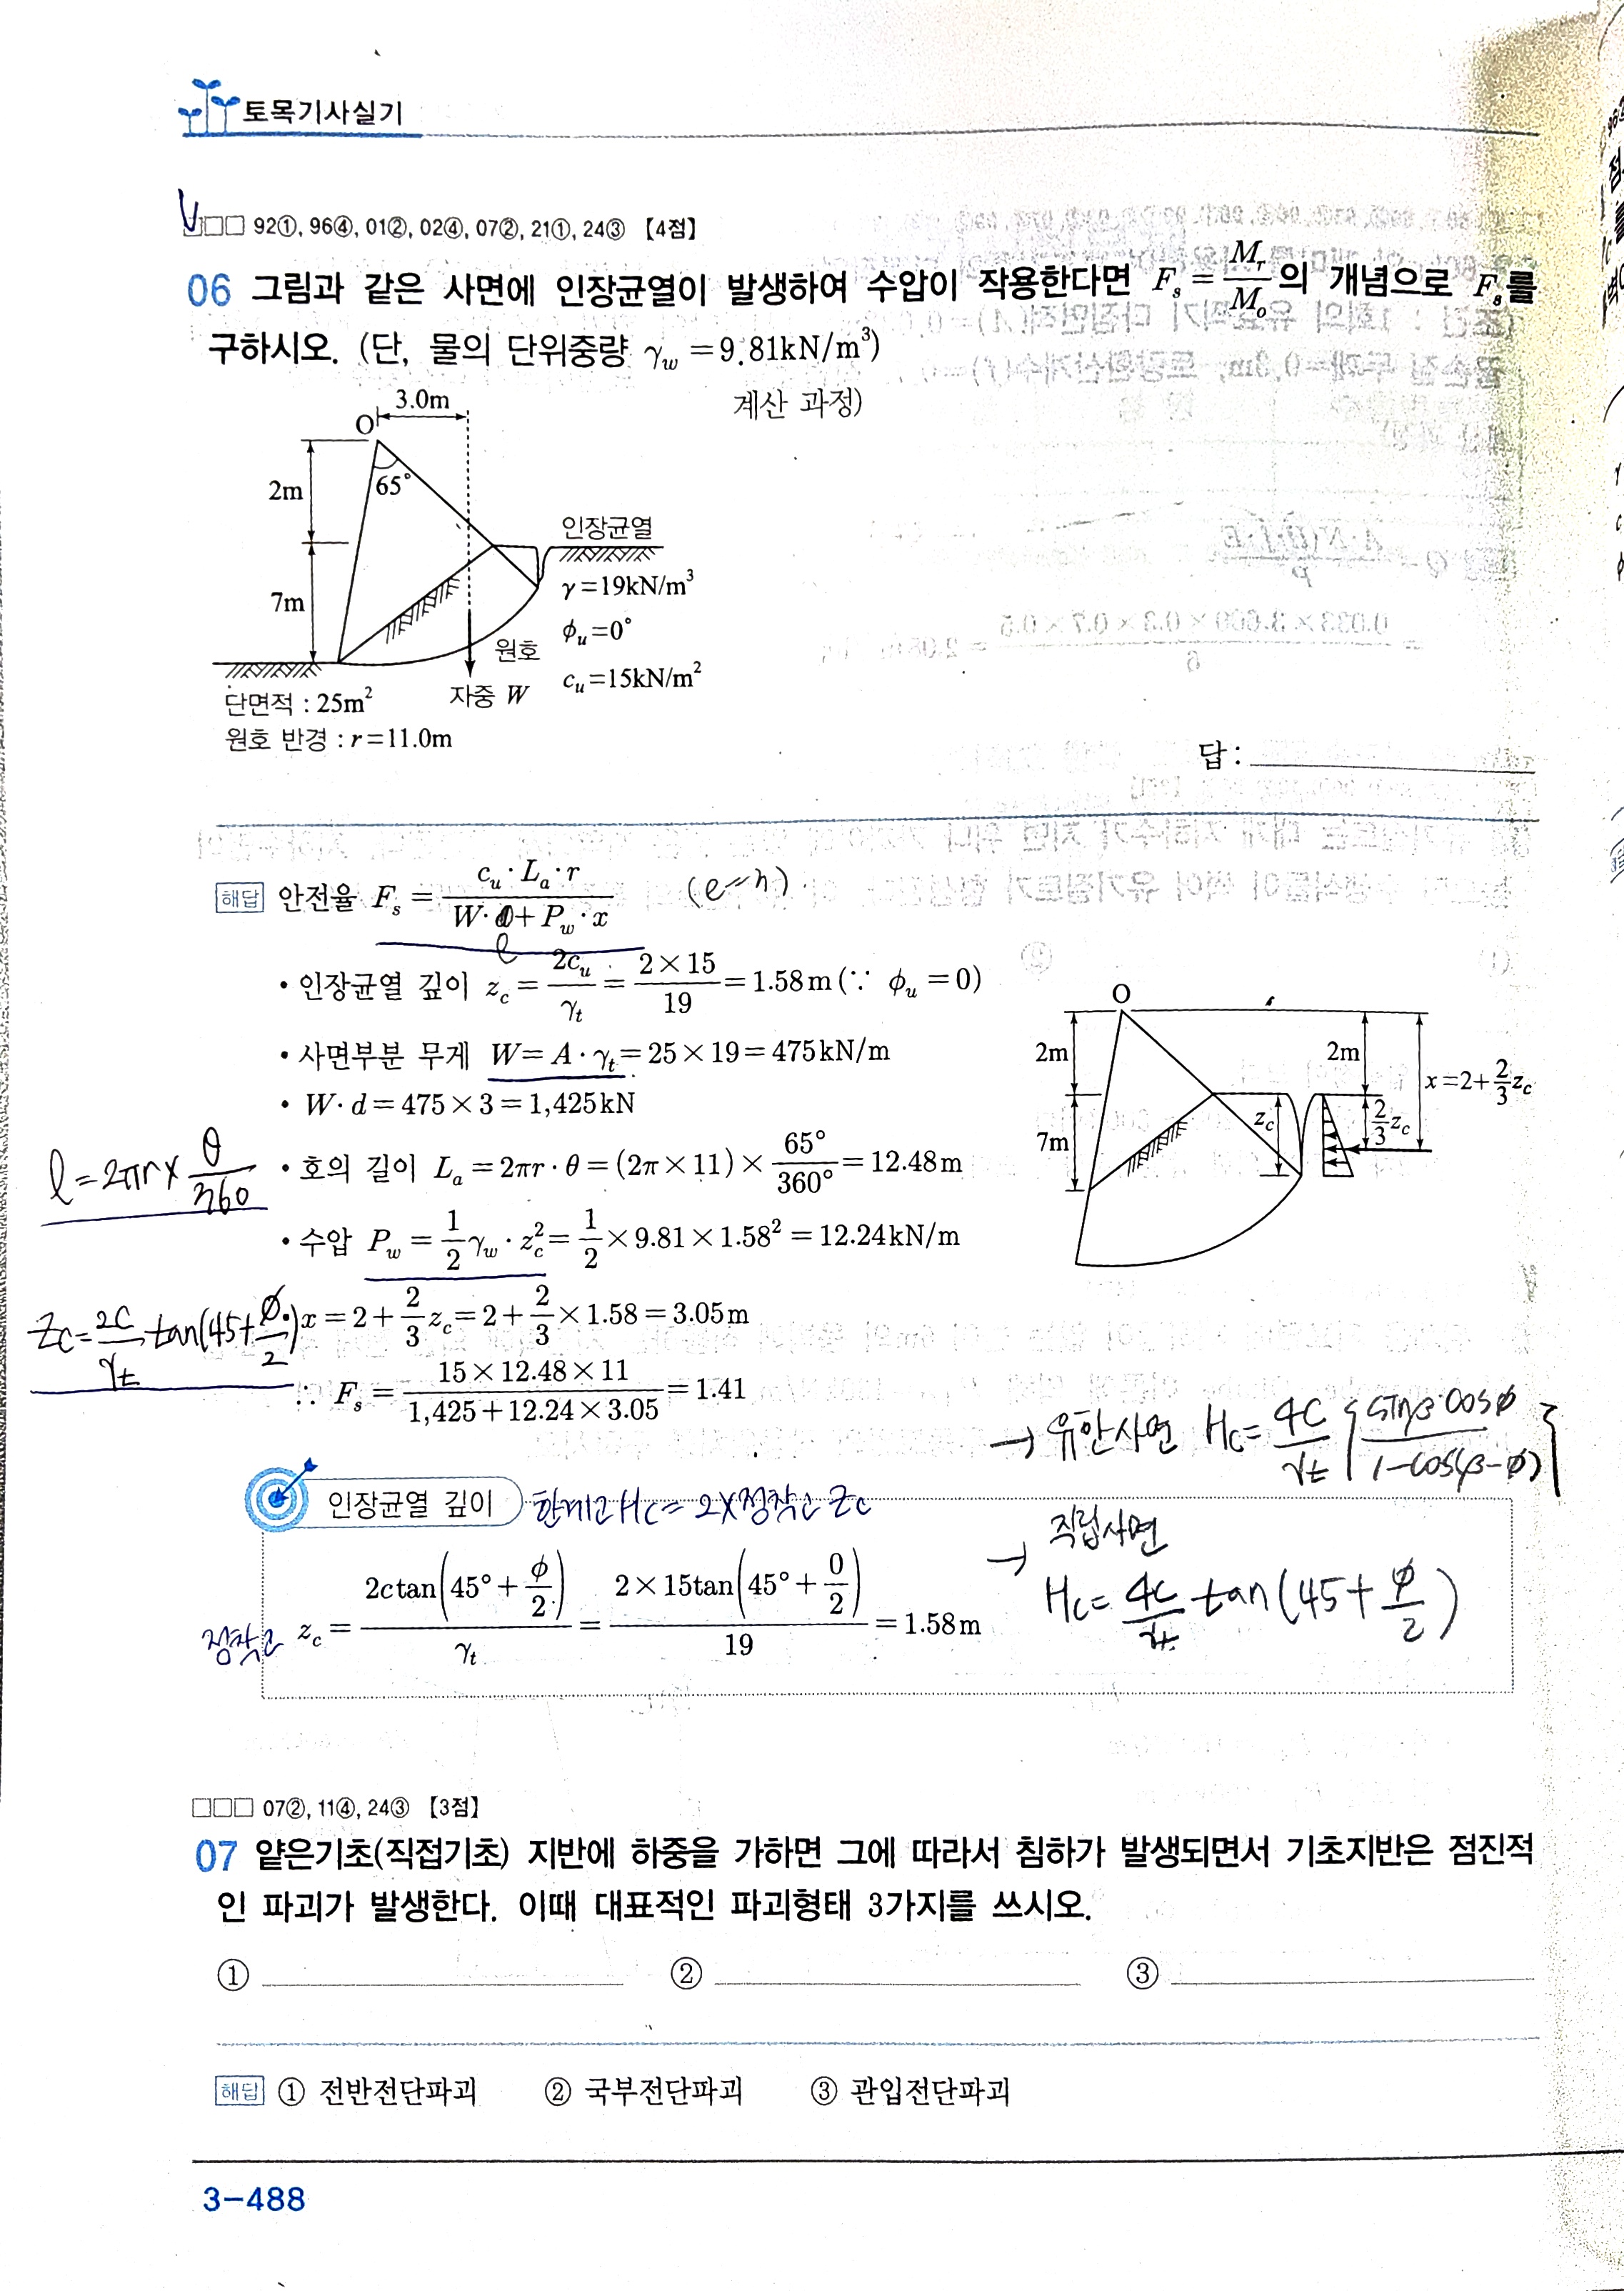 토목기사실기
□□□ 92①, 96④, 01②, 02④, 07②, 21①, 24③ 【4점】
06 그림과 같은 사면에 인장균열이 발생하여 수압이 작용한다면 F_s = M_r / M_o 의 개념으로 F_s를
구하시오. (단, 물의 단위중량 γ_w = 9.81kN/m³)
계산 과정)
3.0m
O
65°
2m
7m
인장균열
γ = 19kN/m³
φ_u = 0°
c_u = 15kN/m²
원호
자중 W
단면적 : 25m²
원호 반경 : r = 11.0m
답 :
해답 안전율 F_s = (c_u · L_a · r) / (W · d + P_w · x)
l
• 인장균열 깊이 z_c = 2c_u / γ_t = (2 × 15) / 19 = 1.58m (∵ φ_u = 0)
• 사면부분 무게 W = A · γ_t = 25 × 19 = 475kN/m
• W · d = 475 × 3 = 1,425kN
l = 2πr × θ / 360
• 호의 길이 L_a = 2πr · θ = (2π × 11) × 65° / 360° = 12.48m
• 수압 P_w = 1/2 γ_w · z_c² = 1/2 × 9.81 × 1.58² = 12.24kN/m
Zc = 2C / γt tan(45 + φ/2)
• x = 2 + 2/3 z_c = 2 + 2/3 × 1.58 = 3.05m
∴ F_s = (15 × 12.48 × 11) / (1,425 + 12.24 × 3.05) = 1.41
O
2m
7m
z_c
2m
2/3 z_c
x = 2 + 2/3 z_c
→ 유한사면 Hc = 4C / γt { sinβ·cosφ / 1-cos(β-φ) }
인장균열 깊이
한계고 Hc = 2×점착고 Zc
→ 직립사면
Hc = 4C / γt tan(45 + φ/2)
점착고
z_c = 2c tan(45° + φ/2) / γ_t = 2 × 15tan(45° + 0/2) / 19 = 1.58m
□□□ 07②, 11④, 24③ 【3점】
07 얕은기초(직접기초) 지반에 하중을 가하면 그에 따라서 침하가 발생되면서 기초지반은 점진적
인 파괴가 발생한다. 이때 대표적인 파괴형태 3가지를 쓰시오.
① ② ③
해답 ① 전반전단파괴 ② 국부전단파괴 ③ 관입전단파괴
3-488